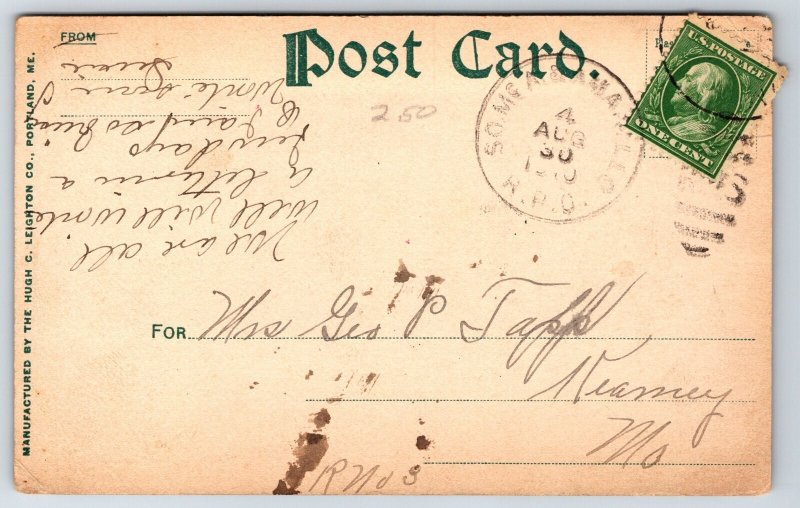 FROM
Post Card.
U.S. POSTAGE
ONE CENT
250
4
AUG
30
1910
R.P.O.
We are all
well will write
a letter in a
few days
I am so busy
FOR Mrs Geo P Tapp
Kearney
Mo
R No 3
MANUFACTURED BY THE HUGH C. LEIGHTON CO., PORTLAND, ME.